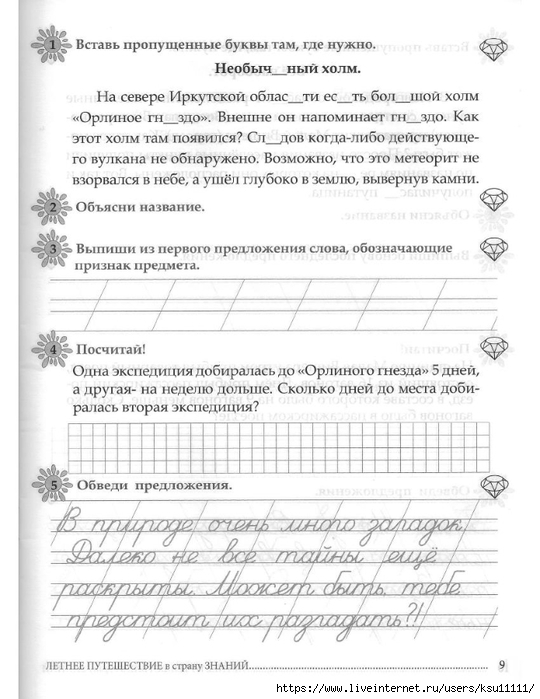 1 Вставь пропущенные буквы там, где нужно.
Необыч__ный холм.
На севере Иркутской облас__ти ес__ть бол__шой холм
«Орлиное гн__здо». Внешне он напоминает гн__здо. Как
этот холм там появился? Сл__дов когда-либо действующе-
го вулкана не обнаружено. Возможно, что это метеорит не
взорвался в небе, а ушёл глубоко в землю, вывернув камни.
2 Объясни название.
3 Выпиши из первого предложения слова, обозначающие
признак предмета.
4 Посчитай!
Одна экспедиция добиралась до «Орлиного гнезда» 5 дней,
а другая- на неделю дольше. Сколько дней до места доби-
ралась вторая экспедиция?
5 Обведи предложения.
В природе очень много загадок.
Далеко не все тайны ещё
раскрыты. Может быть, тебе
предстоит их разгадать?!
ЛЕТНЕЕ ПУТЕШЕСТВИЕ в страну ЗНАНИЙ.......................................................... 9
https://www.liveinternet.ru/users/ksu11111/